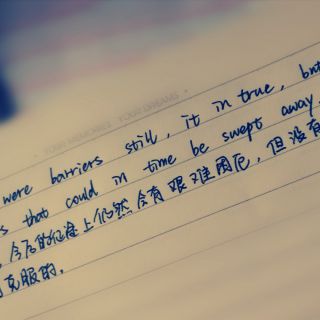 YOUR MEMORIES YOUR DREAMS
were barriers still, it in true, but
that could in time be swept away.
今后的征途上仍然会有艰难困厄,但没有
克服的.